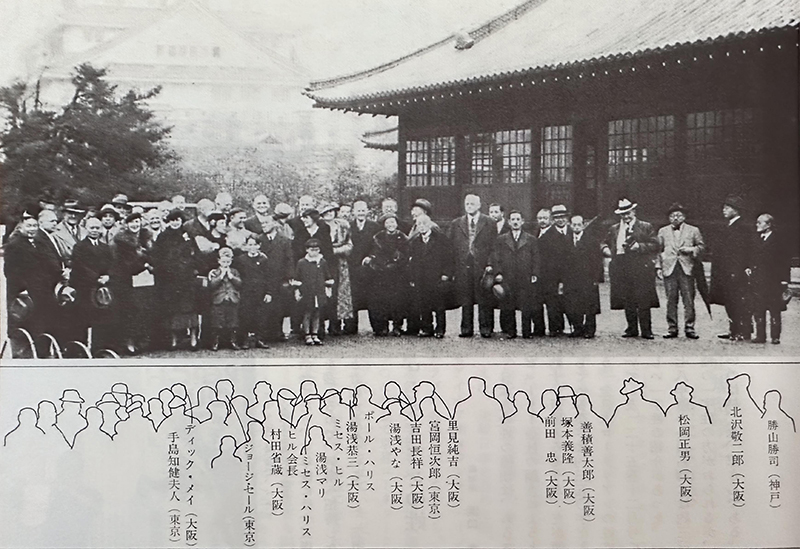 勝山勝司（神戸）
北沢敬二郎（大阪）
松岡正男（大阪）
善積善太郎（大阪）
塚本義隆（大阪）
前田　忠（大阪）
里見純吉（大阪）
宮岡恒次郎（東京）
吉田長祥（大阪）
湯浅やな（大阪）
ポール・ハリス
湯浅恭三（大阪）
ミセス・ヒル
湯浅マリ
ミセス・ハリス
ヒル会長
村田省蔵（大阪）
ジョージ・セール（東京）
ディック・メイ（大阪）
手島知健夫人（東京）